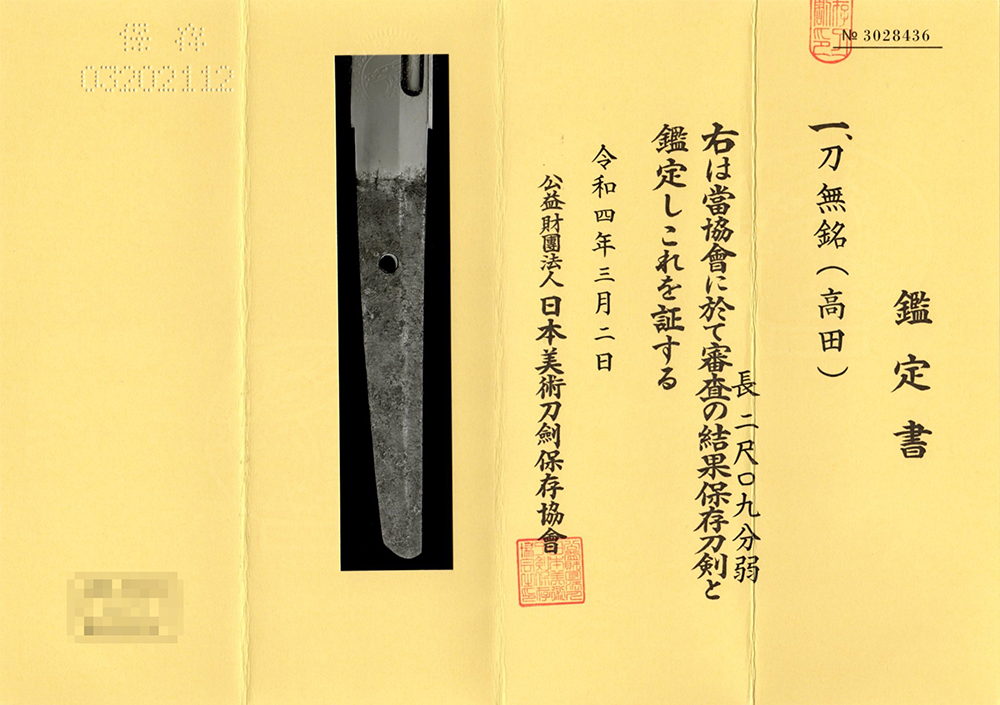 № 3028436
鑑定書
一、刀無銘(高田)
長二尺〇九分弱
右は當協會に於て審査の結果保存刀剣と
鑑定しこれを証する
令和四年三月二日
公益財團法人日本美術刀劍保存協會
保存
03202112